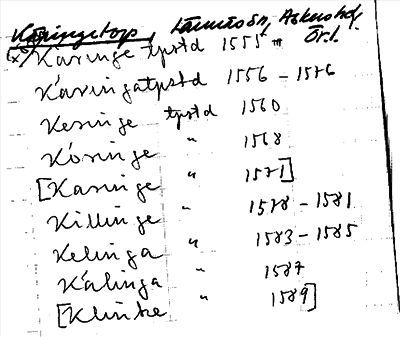 Käringetorp, Länna sn, Åkers hd,
Kåringe tpstd 1555 Ör.l.
Käringatpstd 1556 – 1576
Keringe tpstd 1560
Köringe " 1568
[Karinge " 1571]
Killinge " 1578 – 1581
Kelinga " 1583 – 1585
Kälinga " 1587
[Klinke " 1589]